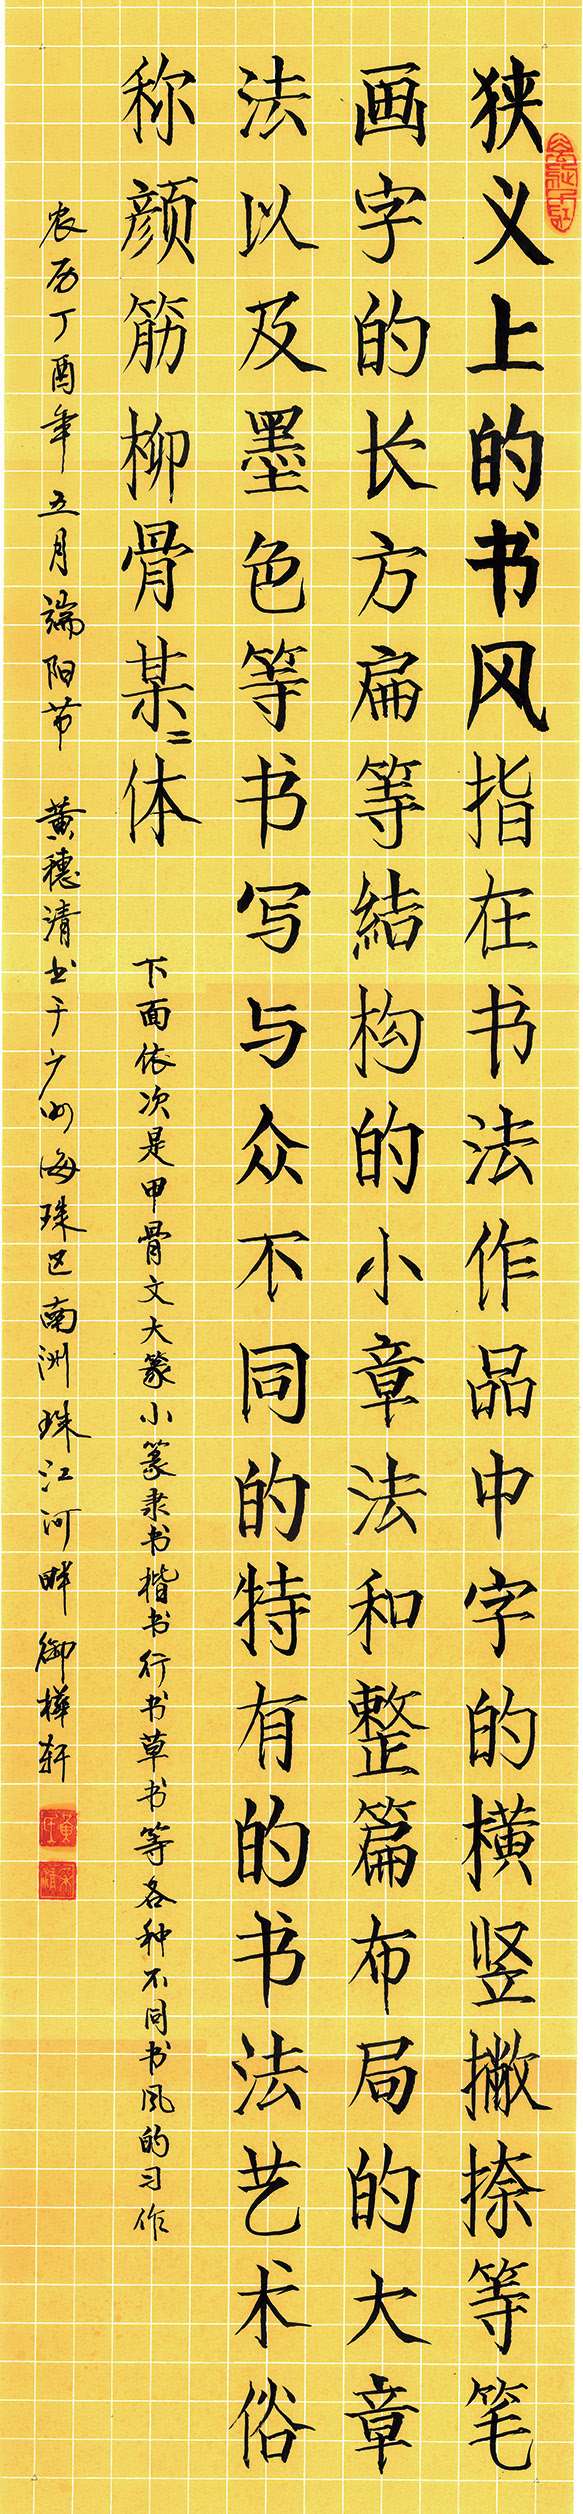 狭义上的书风指在书法作品中字的横竖撇捺等笔
画字的长方扁等結构的小章法和整篇布局的大章
法以及墨色等书写与众不同的特有的书法艺术俗
称颜筋柳骨某〻体
下面依次是甲骨文大篆小篆隶书楷书行书草书等各种不同书风的习作
农历丁酉年五月端阳节 黄穗清书于广州海珠区南洲珠江河畔御樺轩